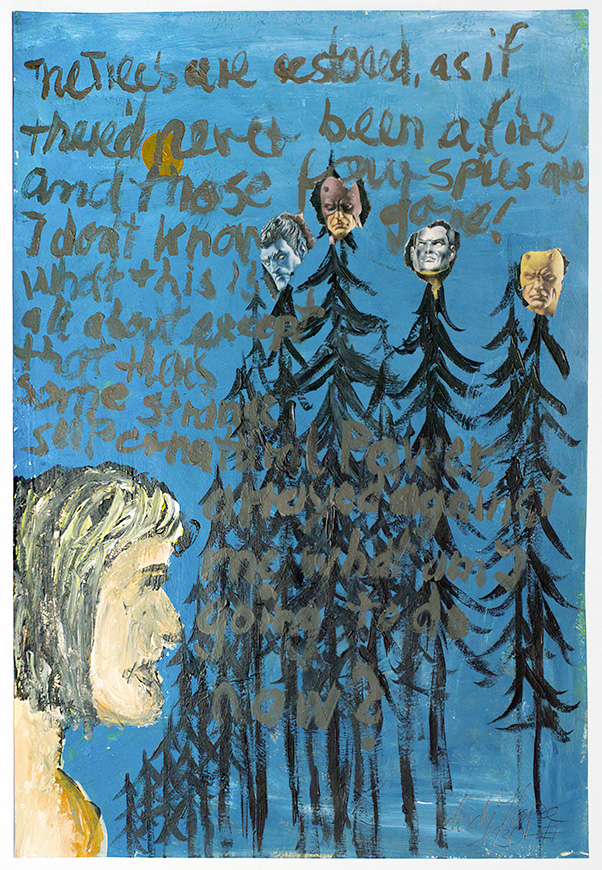 The Trees are restored, as if
there'd never been a fire
and those four spies are
gone!
I don't know
what this is
all about except
that
some strange
supernatural Power
arrayed against
me what am I
going to do
now?